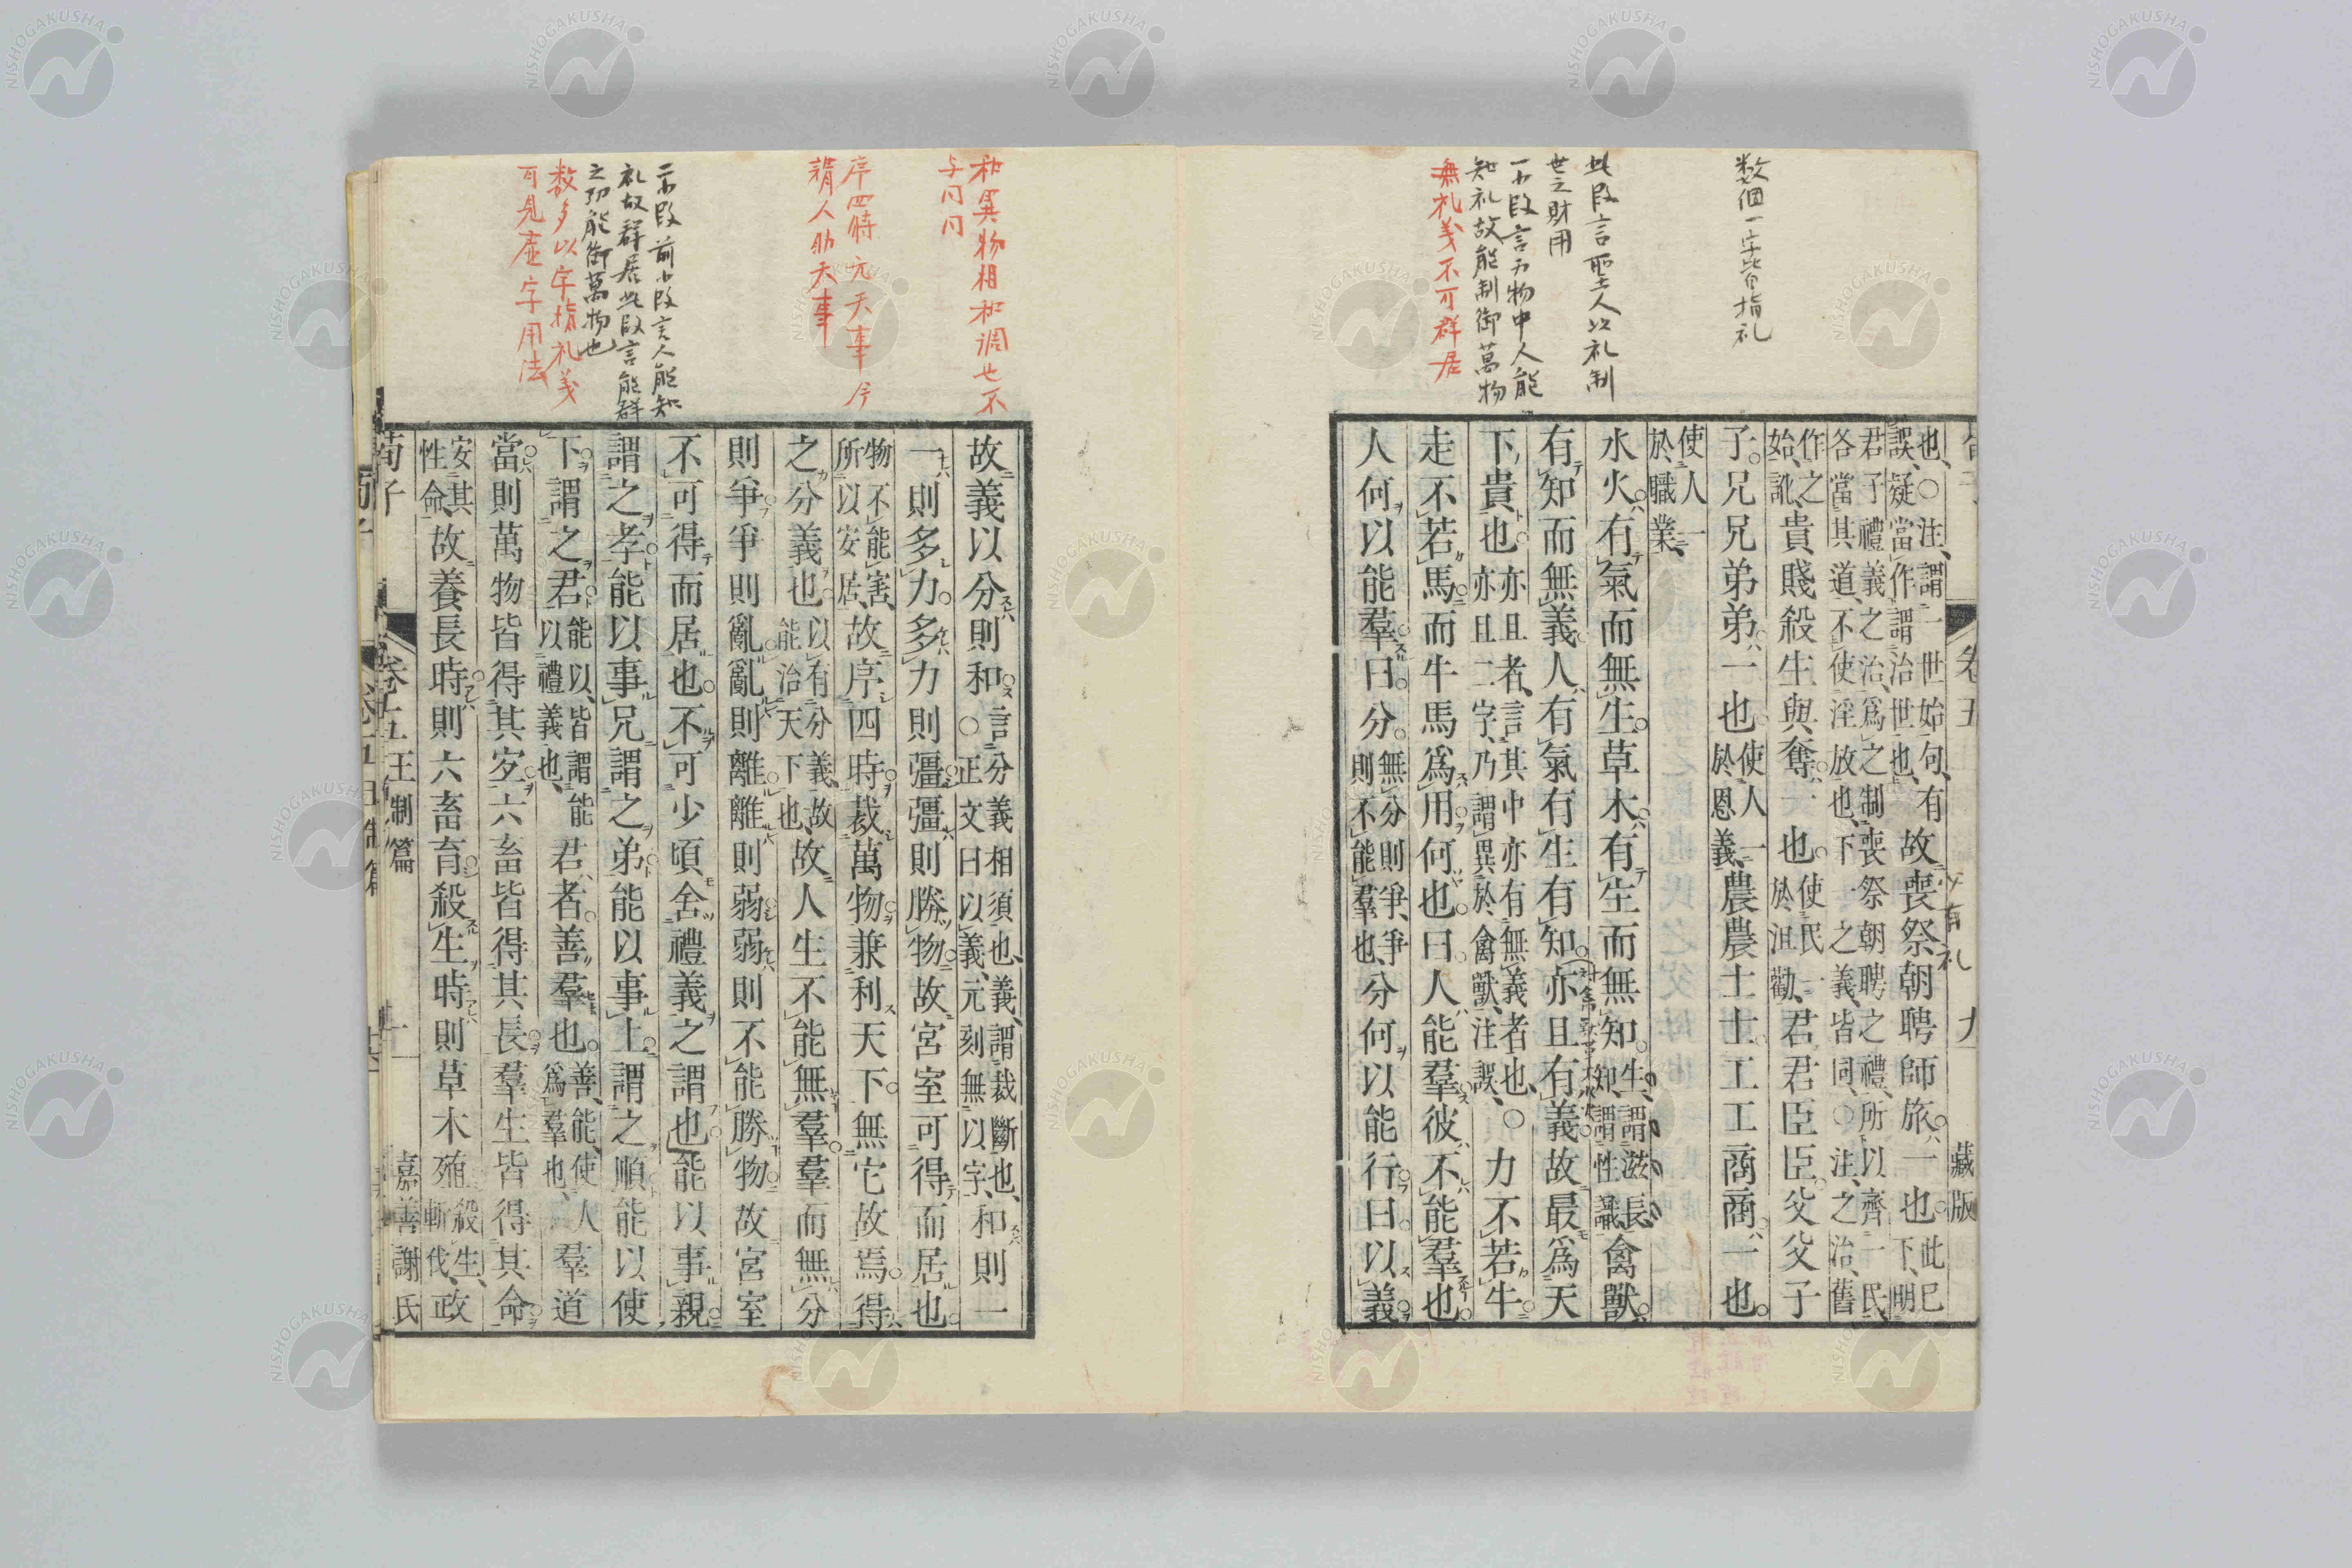 数個一字皆指礼
此段言聖人以礼制
世之財用
一小段言万物中人能
知礼故能制御萬物
無礼義不可群居
卷五 九 藏版
也、○注、謂一世始句、有
誤、疑當作謂治世也、
故喪祭朝聘師旅一也
此已
下、明
君子禮義之治、爲之制喪祭朝聘之禮、所以齊一民、
各當其道、不使淫放也、下一之義、皆同、○注、之治、舊
作之
始、訛、
貴賤殺生與奪一也
使民一
於沮勸、
君君臣臣父父子
子兄兄弟弟一也
使人一
於恩義、
農農士士工工商商一也
使人一
於職業、
水火有氣而無生草木有生而無知
生、謂滋長、
知、謂性識、
禽獸
有知而無義人有氣有生有知亦且有義故最爲天
下貴也
亦且者、言其中亦有無義者也、
亦且二字、乃謂異於禽獸、注誤、
○力不若牛
走不若馬而牛馬爲用何也曰人能羣彼不能羣也
人何以能羣曰分
無分則爭、爭
則不能羣也、
分何以能行曰以義
和異物相和調也不
与同同
序四時元天事今
人助天事
二小段前小段言人能知
礼故群居此段言能群
之功能御萬物也
数多以字指礼義
可見虛字用法
故義以分則和
言分義相須也、義、謂裁斷也、
○正文曰以義、元刻無以字、
和則一
一則多力多力則彊彊則勝物故宮室可得而居也
物不能害、
所以安居、
故序四時裁萬物兼利天下無它故焉得
之分義也
以有分義、故
能治天下也、
故人生不能無羣羣而無分
則爭爭則亂亂則離離則弱弱則不能勝物故宮室
不可得而居也不可少頃舍禮義之謂也能以事親
謂之孝能以事兄謂之弟能以事上謂之順能以使
下謂之君
能以、皆謂能
以禮義也、
君者善羣也
善能、使人
爲羣也、
羣道
當則萬物皆得其宜六畜皆得其長羣生皆得其命
安其
性命、
故養長時則六畜育殺生時則草木殖
殺生、
斬伐、
政
荀子 卷五王制篇 嘉善謝氏
NISHOGAKUSHA